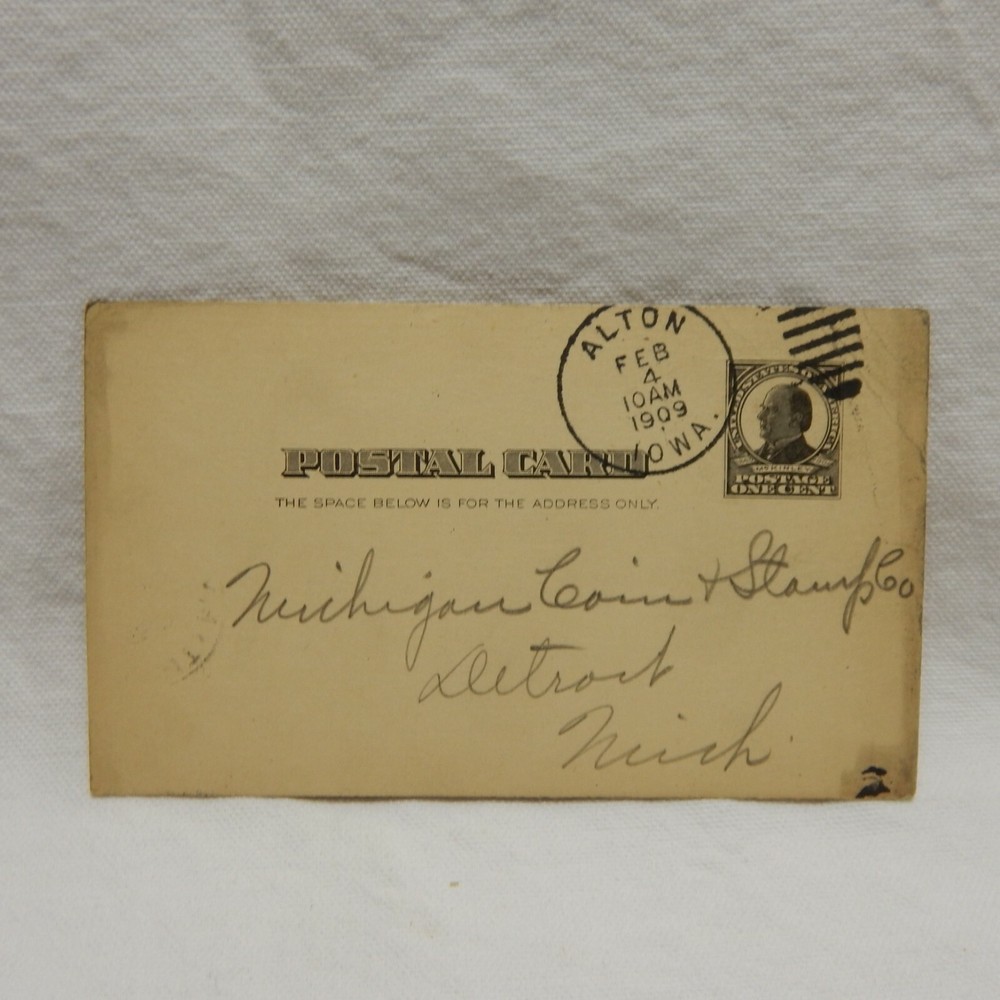 ALTON
FEB
4
10AM
1909
IOWA.
UNITED STATES OF AMERICA
McKINLEY
POSTAGE
ONE CENT
POSTAL CARD
THE SPACE BELOW IS FOR THE ADDRESS ONLY.
Michigan Coin & Stamp Co
Detroit
Mich.